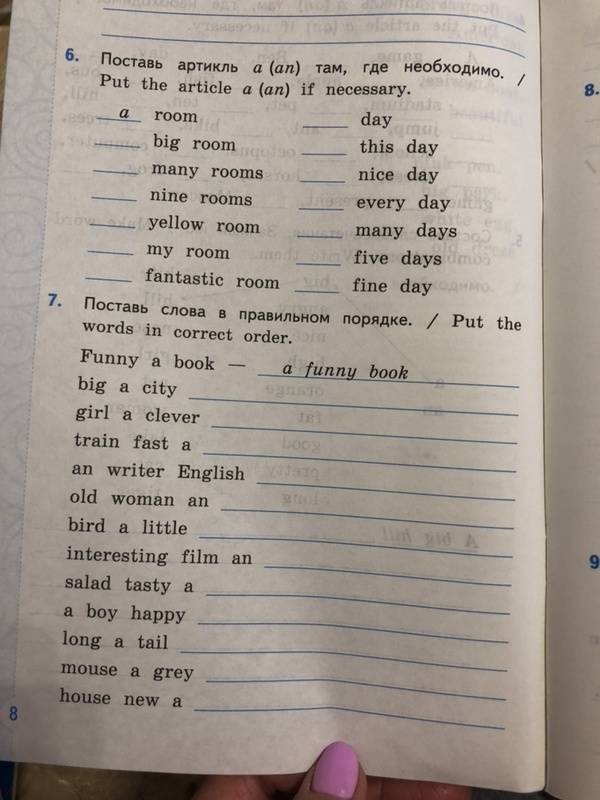 6. Поставь артикль a (an) там, где необходимо. /
Put the article a (an) if necessary.
a room ____ day
____ big room ____ this day
____ many rooms ____ nice day
____ nine rooms ____ every day
____ yellow room ____ many days
____ my room ____ five days
____ fantastic room ____ fine day
7. Поставь слова в правильном порядке. / Put the
words in correct order.
Funny a book — a funny book
big a city
girl a clever
train fast a
an writer English
old woman an
bird a little
interesting film an
salad tasty a
a boy happy
long a tail
mouse a grey
house new a
8
8.
9